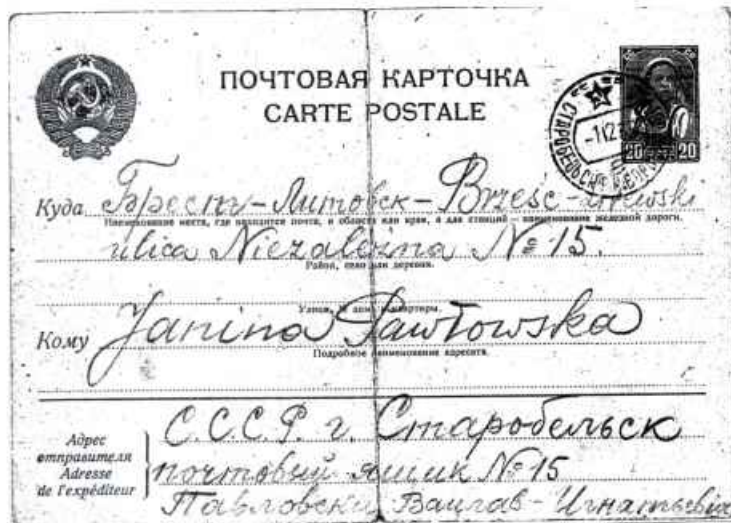 ПОЧТОВАЯ КАРТОЧКА
CARTE POSTALE
20 20
СТАРОБЕЛЬСК
Куда Брест-Литовск-Brześć-Litewski
Наименование места, где находится почта, и области или края, а для станций — наименование железной дороги.
ulica Niezależna № 15.
Район, село или деревня.
Кому Janina Pawłowska
Подробное наименование адресата.
Адрес отправителя
Adresse de l'expéditeur
С.С.С.Р. г. Старобельск
почтовый ящик № 15
Павловски Вацлав-Игнатьевич